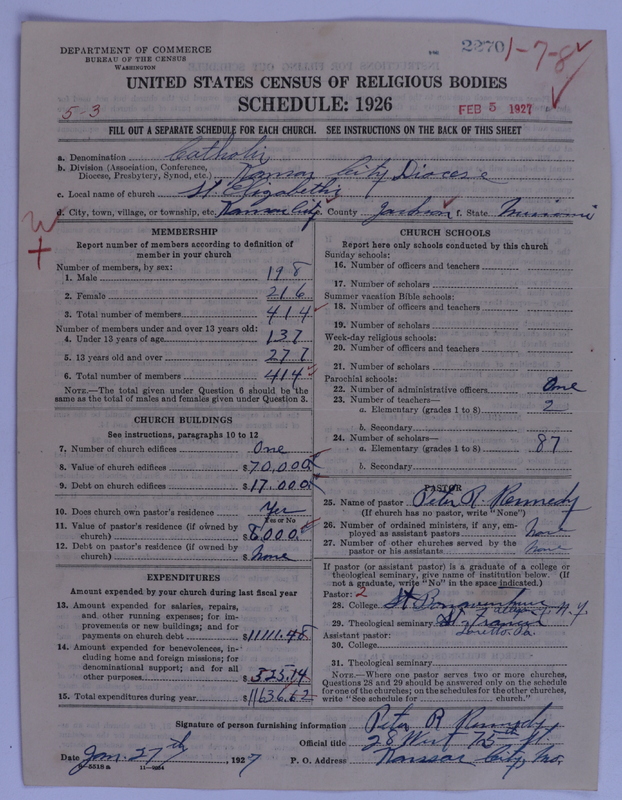 DEPARTMENT OF COMMERCE
BUREAU OF THE CENSUS
WASHINGTON
2270
1-7-8
UNITED STATES CENSUS OF RELIGIOUS BODIES
SCHEDULE: 1926
5-3
FEB 5 1927
FILL OUT A SEPARATE SCHEDULE FOR EACH CHURCH. SEE INSTRUCTIONS ON THE BACK OF THIS SHEET
a. Denomination Catholic
b. Division (Association, Conference, Diocese, Presbytery, Synod, etc.) Kansas City Diocese
c. Local name of church St Elizabeth's
d. City, town, village, or township, etc. Kansas City County Jackson f. State Missouri
MEMBERSHIP
Report number of members according to definition of member in your church
Number of members, by sex:
1. Male 198
2. Female 216
3. Total number of members 414
Number of members under and over 13 years old:
4. Under 13 years of age 137
5. 13 years old and over 277
6. Total number of members 414
NOTE.—The total given under Question 6 should be the same as the total of males and females given under Question 3.
CHURCH BUILDINGS
See instructions, paragraphs 10 to 12
7. Number of church edifices One
8. Value of church edifices $70,000
9. Debt on church edifices $17,000
10. Does church own pastor's residence Yes
Yes or No
11. Value of pastor's residence (if owned by church) $8,000
12. Debt on pastor's residence (if owned by church) $None
EXPENDITURES
Amount expended by your church during last fiscal year
13. Amount expended for salaries, repairs, and other running expenses; for improvements or new buildings; and for payments on church debt $11111.48
14. Amount expended for benevolences, including home and foreign missions; for denominational support; and for all other purposes $525.14
15. Total expenditures during year $11636.62
CHURCH SCHOOLS
Report here only schools conducted by this church
Sunday schools:
16. Number of officers and teachers
17. Number of scholars
Summer vacation Bible schools:
18. Number of officers and teachers
19. Number of scholars
Week-day religious schools:
20. Number of officers and teachers
21. Number of scholars
Parochial schools:
22. Number of administrative officers One
23. Number of teachers—
a. Elementary (grades 1 to 8) 2
b. Secondary
24. Number of scholars—
a. Elementary (grades 1 to 8) 87
b. Secondary
PASTOR
25. Name of pastor Peter R. Kennedy
(If church has no pastor, write "None")
26. Number of ordained ministers, if any, employed as assistant pastors None
27. Number of other churches served by the pastor or his assistants None
If pastor (or assistant pastor) is a graduate of a college or theological seminary, give name of institution below. (If not a graduate, write "No" in the space indicated.)
Pastor: 2
28. College St Bonaventure N.Y.
29. Theological seminary St Francis
Loretto, Pa.
Assistant pastor:
30. College
31. Theological seminary
NOTE.—Where one pastor serves two or more churches, Questions 28 and 29 should be answered only on the schedule for one of the churches; on the schedules for the other churches, write "See schedule for church."
Signature of person furnishing information Peter R Kennedy
Official title 28 West 75th St.
Date Jan. 27th, 1927 P. O. Address Kansas City, Mo.
8-5518 a